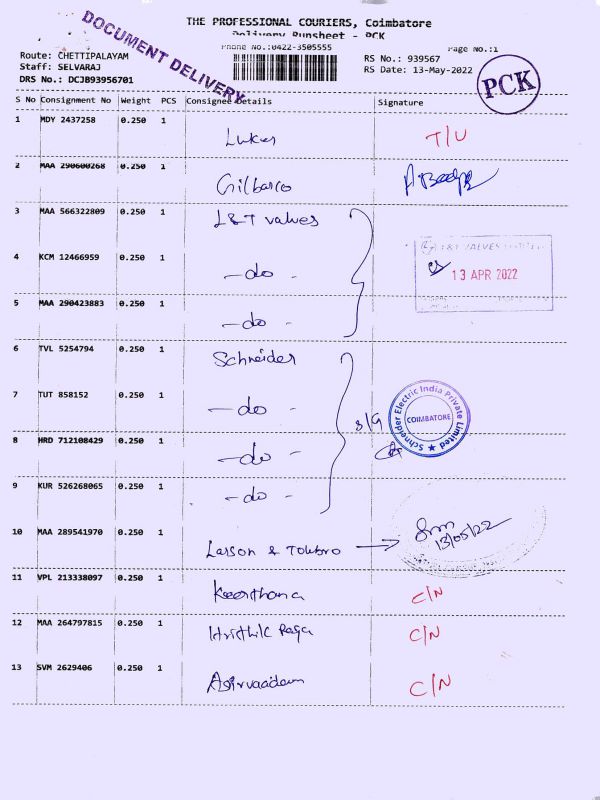 THE PROFESSIONAL COURIERS, Coimbatore
Delivery Runsheet - PCK
DOCUMENT DELIVERY
Phone No.:0422-3505555
Page No.:1
Route: CHETTIPALAYAM
RS No.: 939567
Staff: SELVARAJ
RS Date: 13-May-2022
DRS No.: DCJB93956701
PCK
S No Consignment No Weight PCS Consignee Details Signature
1 MDY 2437258 0.250 1 Lukas T/U
2 MAA 290600268 0.250 1 Gilbarco
3 MAA 566322809 0.250 1 L&T valves
L&T VALVES LIMITED
13 APR 2022
4 KCM 12466959 0.250 1 -do-
5 MAA 290423883 0.250 1 -do-
6 TVL 5254794 0.250 1 Schneider
7 TUT 858152 0.250 1 -do-
Schneider Electric India Private Limited
COIMBATORE
8 HRD 712108429 0.250 1 -do-
9 KUR 526268065 0.250 1 -do-
10 MAA 289541970 0.250 1 Larson & Toubro
13/05/22
11 VPL 213338097 0.250 1 Keerthana C/N
12 MAA 264797815 0.250 1 Hrithik Raga C/N
13 SVM 2629406 0.250 1 Asirvaadam C/N